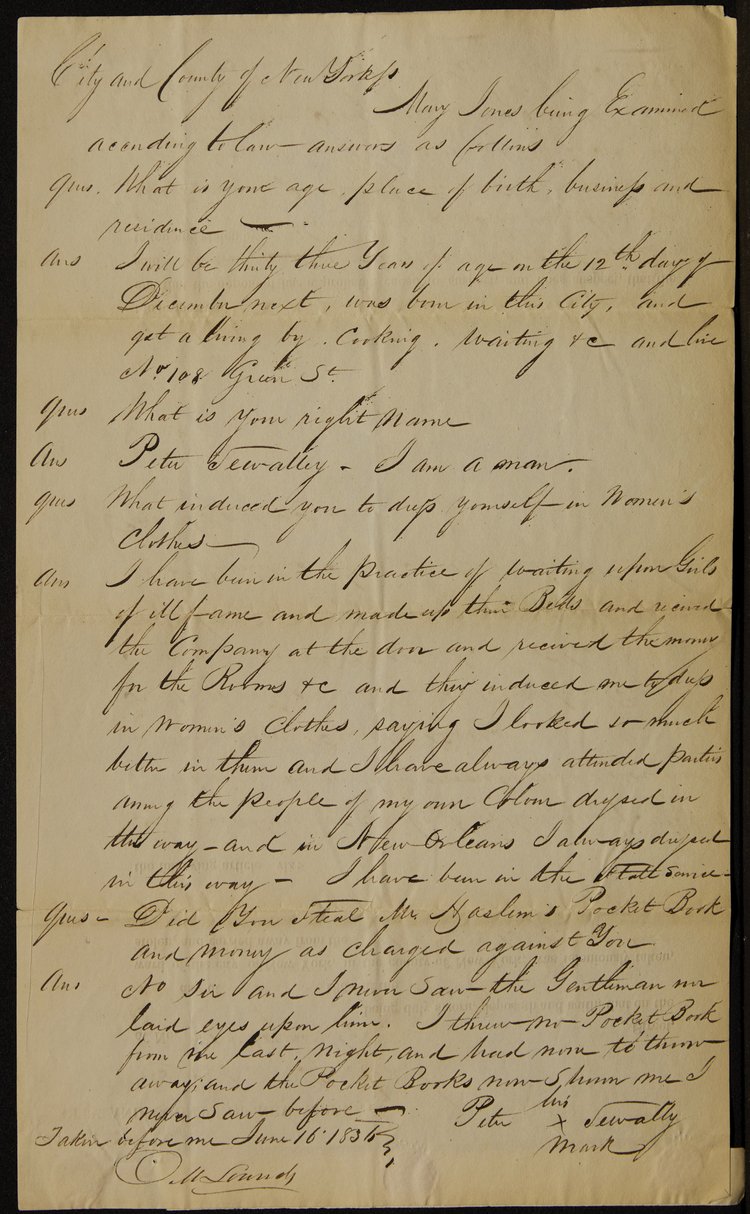 City and County of New York ss
Mary Jones being Examined
according to law – answers as follows
Ques. What is your age, place of birth, business and
residence –
Ans I will be thirty three Years of age on the 12th day of
December next, was born in this City, and
get a living by Cooking, Waiting &c and live
No. 108 Green St.
Ques What is your right name
An Peter Sewalley – I am a man.
Ques What induced you to dress yourself in Women's
Clothes –
Ans I have been in the practice of waiting upon Girls
of ill fame and made up their Beds and recived
the Company at the door and recived the money
for the Rooms &c and they induced me to dress
in Women's Clothes, saying I looked so much
better in them and I have always attended parties
among the people of my own Colour dressed in
this way – and in New Orleans I always dressed
in this way – I have been in the State Service –
Ques – Did You Steal Mr. Haslem's Pocket Book
and money as charged against You
Ans No Sir and I never Saw the Gentleman nor
laid eyes upon him. I threw no Pocket Book
from me last night, and had none to throw
away, and the Pocket Books now Shown me I
never Saw before –
Peter his x mark Sewally
Taken before me June 16 1836